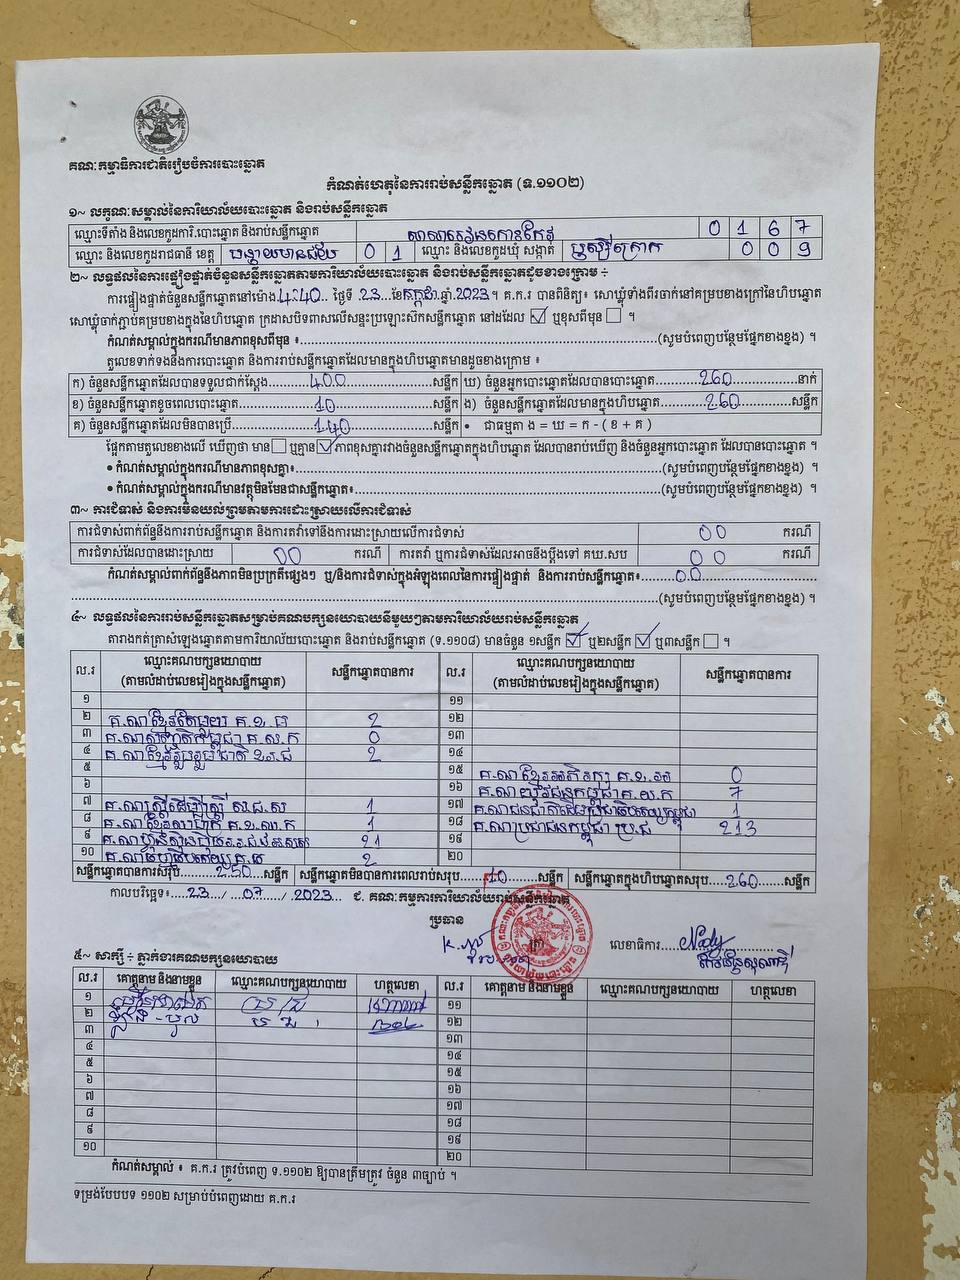 គណៈកម្មាធិការជាតិរៀបចំការបោះឆ្នោត
កំណត់ហេតុនៃការរាប់សន្លឹកឆ្នោត (ទ.១១០២)
១~ លក្ខណៈសម្គាល់នៃការិយាល័យបោះឆ្នោត និងរាប់សន្លឹកឆ្នោត
ឈ្មោះទីតាំង និងលេខកូដការិ.បោះឆ្នោត និងរាប់សន្លឹកឆ្នោត 0 1 6 7
ឈ្មោះ និងលេខកូដរាជធានី ខេត្ត បន្ទាយមានជ័យ 0 1 ឈ្មោះ និងលេខកូដឃុំ សង្កាត់ ឫស្សីក្រោក 0 0 9
២~ លទ្ធផលនៃការផ្ទៀងផ្ទាត់ចំនួនសន្លឹកឆ្នោតតាមការិយាល័យបោះឆ្នោត និងរាប់សន្លឹកឆ្នោតដូចខាងក្រោម ÷
ការផ្ទៀងផ្ទាត់ចំនួនសន្លឹកឆ្នោតនៅម៉ោង 4:40 ថ្ងៃទី 23 ខែ កក្កដា ឆ្នាំ 2023 ។ គ.ក.រ បានពិនិត្យ៖ សោឃ្លុំទាំងពីរចាក់នៅគម្របខាងក្រៅនៃហិបឆ្នោត
សោឃ្លុំចាក់ភ្ជាប់គម្របខាងក្នុងនៃហិបឆ្នោត ក្រដាសបិទពាសលើសន្ទះប្រឡោះស៊កសន្លឹកឆ្នោត នៅដដែល ☑ ឬខុសពីមុន ☐ ។
កំណត់សម្គាល់ក្នុងករណីមានភាពខុសពីមុន ៖ (សូមបំពេញបន្ថែមផ្នែកខាងខ្នង) ។
តួលេខទាក់ទងនឹងការបោះឆ្នោត និងការរាប់សន្លឹកឆ្នោតដែលមានក្នុងហិបឆ្នោតមានដូចខាងក្រោម ៖
ក) ចំនួនសន្លឹកឆ្នោតដែលបានទទួលជាក់ស្តែង 400 សន្លឹក ឃ) ចំនួនអ្នកបោះឆ្នោតដែលបានបោះឆ្នោត 260 នាក់
ខ) ចំនួនសន្លឹកឆ្នោតខូចពេលបោះឆ្នោត 10 សន្លឹក ង) ចំនួនសន្លឹកឆ្នោតដែលមានក្នុងហិបឆ្នោត 260 សន្លឹក
គ) ចំនួនសន្លឹកឆ្នោតដែលមិនបានប្រើ 140 សន្លឹក • ជាធម្មតា ង = ឃ = ក - ( ខ + គ )
ផ្អែកតាមតួលេខខាងលើ ឃើញថា មាន ☐ ឬគ្មាន ☑ ភាពខុសគ្នារវាងចំនួនសន្លឹកឆ្នោតក្នុងហិបឆ្នោត ដែលបានរាប់ឃើញ និងចំនួនអ្នកបោះឆ្នោត ដែលបានបោះឆ្នោត ។
• កំណត់សម្គាល់ក្នុងករណីមានភាពខុសគ្នា៖ (សូមបំពេញបន្ថែមផ្នែកខាងខ្នង) ។
• កំណត់សម្គាល់ក្នុងករណីមានវត្ថុមិនមែនជាសន្លឹកឆ្នោត៖ (សូមបំពេញបន្ថែមផ្នែកខាងខ្នង) ។
៣~ ការជំទាស់ និងការមិនយល់ព្រមតាមការដោះស្រាយលើការជំទាស់
ការជំទាស់ពាក់ព័ន្ធនឹងការរាប់សន្លឹកឆ្នោត និងការតវ៉ាទៅនឹងការដោះស្រាយលើការជំទាស់ 00 ករណី
ការជំទាស់ដែលបានដោះស្រាយ 00 ករណី ការតវ៉ា ឬការជំទាស់ដែលអាចនឹងប្តឹងទៅ គឃ.សប 00 ករណី
កំណត់សម្គាល់ពាក់ព័ន្ធនឹងភាពមិនប្រក្រតីផ្សេងៗ ឬ/និងការជំទាស់ក្នុងអំឡុងពេលនៃការផ្ទៀងផ្ទាត់ និងការរាប់សន្លឹកឆ្នោត៖ 00
(សូមបំពេញបន្ថែមផ្នែកខាងខ្នង) ។
៤~ លទ្ធផលនៃការរាប់សន្លឹកឆ្នោតសម្រាប់គណបក្សនយោបាយនីមួយៗតាមការិយាល័យរាប់សន្លឹកឆ្នោត
តារាងកត់ត្រាសំឡេងឆ្នោតតាមការិយាល័យបោះឆ្នោត និងរាប់សន្លឹកឆ្នោត (ទ.១១០៨) មានចំនួន ១សន្លឹក ☑ ឬ២សន្លឹក ☑ ឬ៣សន្លឹក ☐ ។
ល.រ ឈ្មោះគណបក្សនយោបាយ (តាមលំដាប់លេខរៀងក្នុងសន្លឹកឆ្នោត) សន្លឹកឆ្នោតបានការ ល.រ ឈ្មោះគណបក្សនយោបាយ (តាមលំដាប់លេខរៀងក្នុងសន្លឹកឆ្នោត) សន្លឹកឆ្នោតបានការ
១ ១១
២ 2 ១២
៣ 0 ១៣
៤ គ.ណខ្មែររួបរួមជាតិ 2 ១៤
៥ ១៥ 0
៦ ១៦ 7
៧ គ.ណស្ត្រីដើម្បីស្ត្រី ស.ដ.ស 1 ១៧ 1
៨ 1 ១៨ គ.ណប្រជាជនកម្ពុជា ប្រ.ជ 213
៩ 21 ១៩
១០ 2 ២០
សន្លឹកឆ្នោតបានការសរុប 250 សន្លឹក សន្លឹកឆ្នោតមិនបានការពេលរាប់សរុប 10 សន្លឹក សន្លឹកឆ្នោតក្នុងហិបឆ្នោតសរុប 260 សន្លឹក
កាលបរិច្ឆេទ៖ 23 / 07 / 2023 ជ. គណៈកម្មការការិយាល័យរាប់សន្លឹកឆ្នោត
ប្រធាន
ត្រា លេខាធិការ
៥~ សាក្សី ÷ ភ្នាក់ងារគណបក្សនយោបាយ
ល.រ គោត្តនាម និងនាមខ្លួន ឈ្មោះគណបក្សនយោបាយ ហត្ថលេខា ល.រ គោត្តនាម និងនាមខ្លួន ឈ្មោះគណបក្សនយោបាយ ហត្ថលេខា
១ ១១
២ ១២
៣ ១៣
៤ ១៤
៥ ១៥
៦ ១៦
៧ ១៧
៨ ១៨
៩ ១៩
១០ ២០
កំណត់សម្គាល់ ៖ គ.ក.រ ត្រូវបំពេញ ទ.១១០២ ឱ្យបានត្រឹមត្រូវ ចំនួន ៣ច្បាប់ ។
ទម្រង់បែបបទ ១១០២ សម្រាប់បំពេញដោយ គ.ក.រ